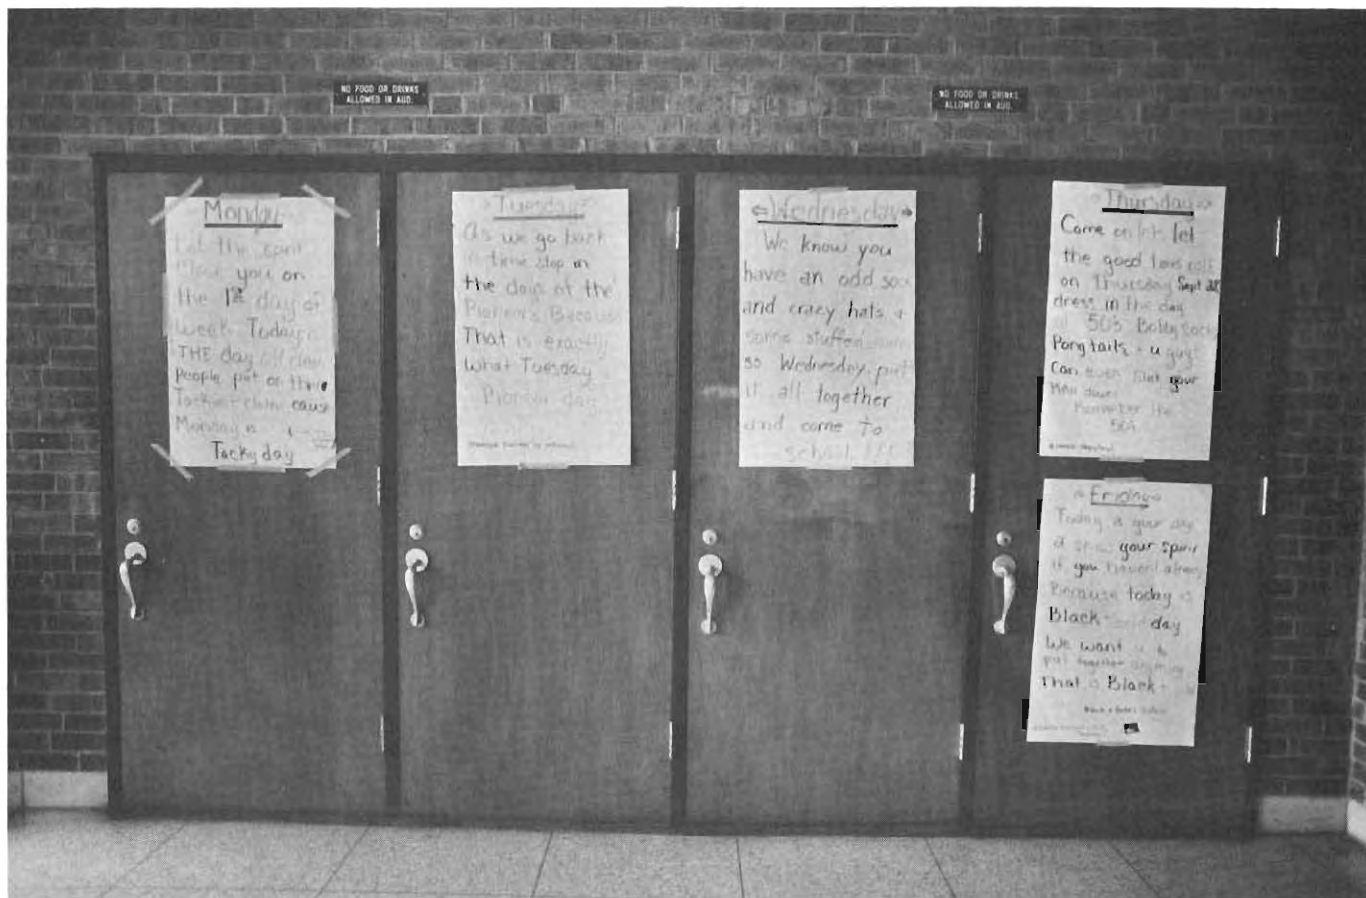 NO FOOD OR DRINKS
ALLOWED IN AUD.
NO FOOD OR DRINKS
ALLOWED IN AUD.
Monday
you on
the 1st day of
week Today
THE day all
People put on
cause
Monday is
Tacky day
Tuesday
As we go back
in time stop in
the days of the
Pioneers Because
That is exactly
What Tuesday
Pioneer day
Wednesday
We know you
have an odd sock
and crazy hats +
some stuffed
so Wednesday, put
it all together
and come to
school !!!
Thursday
Come on lets let
the good times roll
on Thursday Sept
dress in the day
of 50's Bobby socks
Ponytails - u guys
Can even your
Remember the
50's
Friday
Today is your day
your spirit
if you havent already
Because today is
Black day
We want u to
put together anything
That is Black -